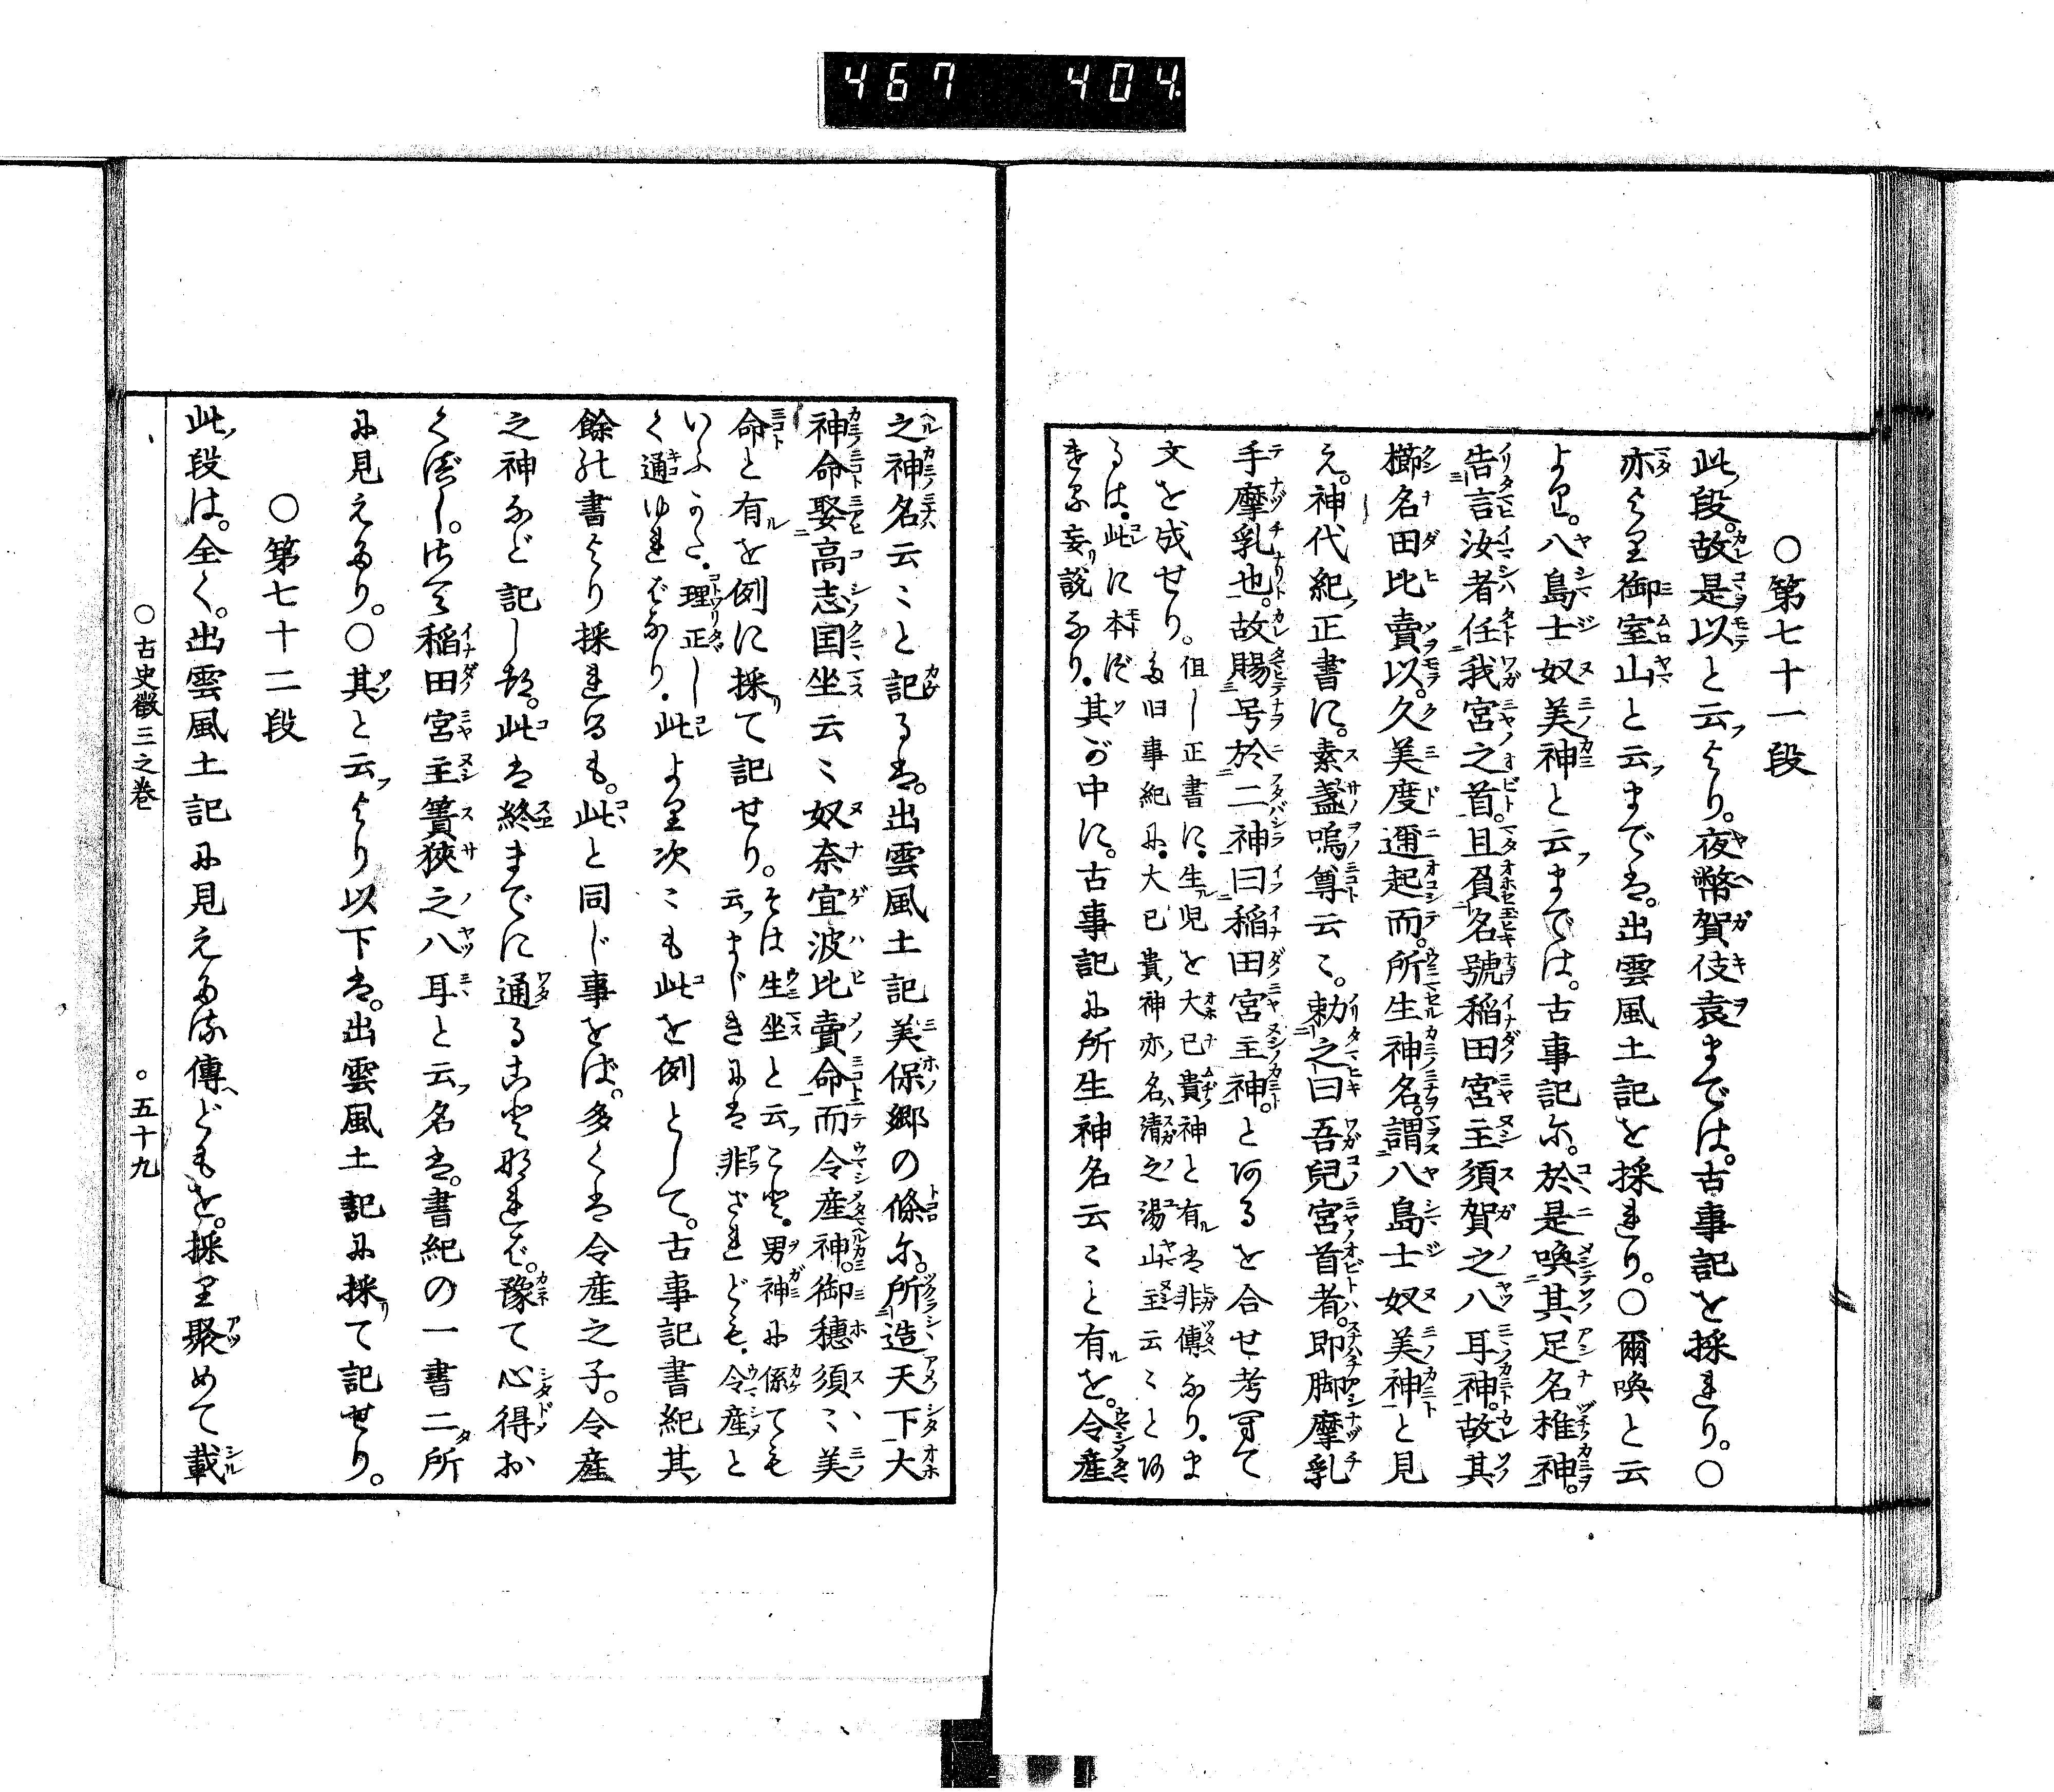 467 404
○第七十一段
此段。故是以と云より。夜幣賀伎袁までは。古事記を採れり。○
亦より御室山と云までは。出雲風土記を採れり。○爾喚と云
より。八島士奴美神と云までは。古事記に。於是喚其足名椎神。
告言汝者任我宮之首。且負名號稲田宮主須賀之八耳神。故其
櫛名田比賣以。久美度邇起而。所生神名。謂八島士奴美神と見
え。神代紀正書に。素盞嗚尊云々。勅之曰吾兒宮首者。即脚摩乳
手摩乳也。故賜号於二神曰稲田宮主神。とあるを合せ考へて
文を成せり。但し正書に。生児を大己貴神と有は非傳なり。ま
た旧事紀に。大己貴神亦名清之湯山主云々とあ
るは。此に本づ
きたる妄説なり。其が中に。古事記に所生神名云々と有を。令産
之神名云々と記るは。出雲風土記美保郷の條に。所造天下大
神命娶高志国坐云々奴奈宜波比賣命而令産神。御穂須々美
命と有を例に採て記せり。そは生坐と云こと。男神に係ても
云まじきには非ざれども。令産と
いふかた。理正し
く通ゆればなり。此より次々も此を例として。古事記書紀其
餘の書より採れるも。此と同じ事をば。多くは令産之子。令産
之神など記しつ。此は終までに通ることなれば。豫て心得お
くべし。さて稲田宮主簀狹之八耳と云名は。書紀の一書二所
に見えたり。○其と云より以下は。出雲風土記に採て記せり。
○第七十二段
此段は。全く。出雲風土記に見えたる傳どもを。採り聚めて載
○古史徴三之巻 ○五十九